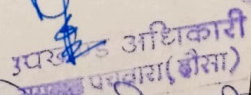 उपखण्ड अधिकारी
पचवारा (दौसा)